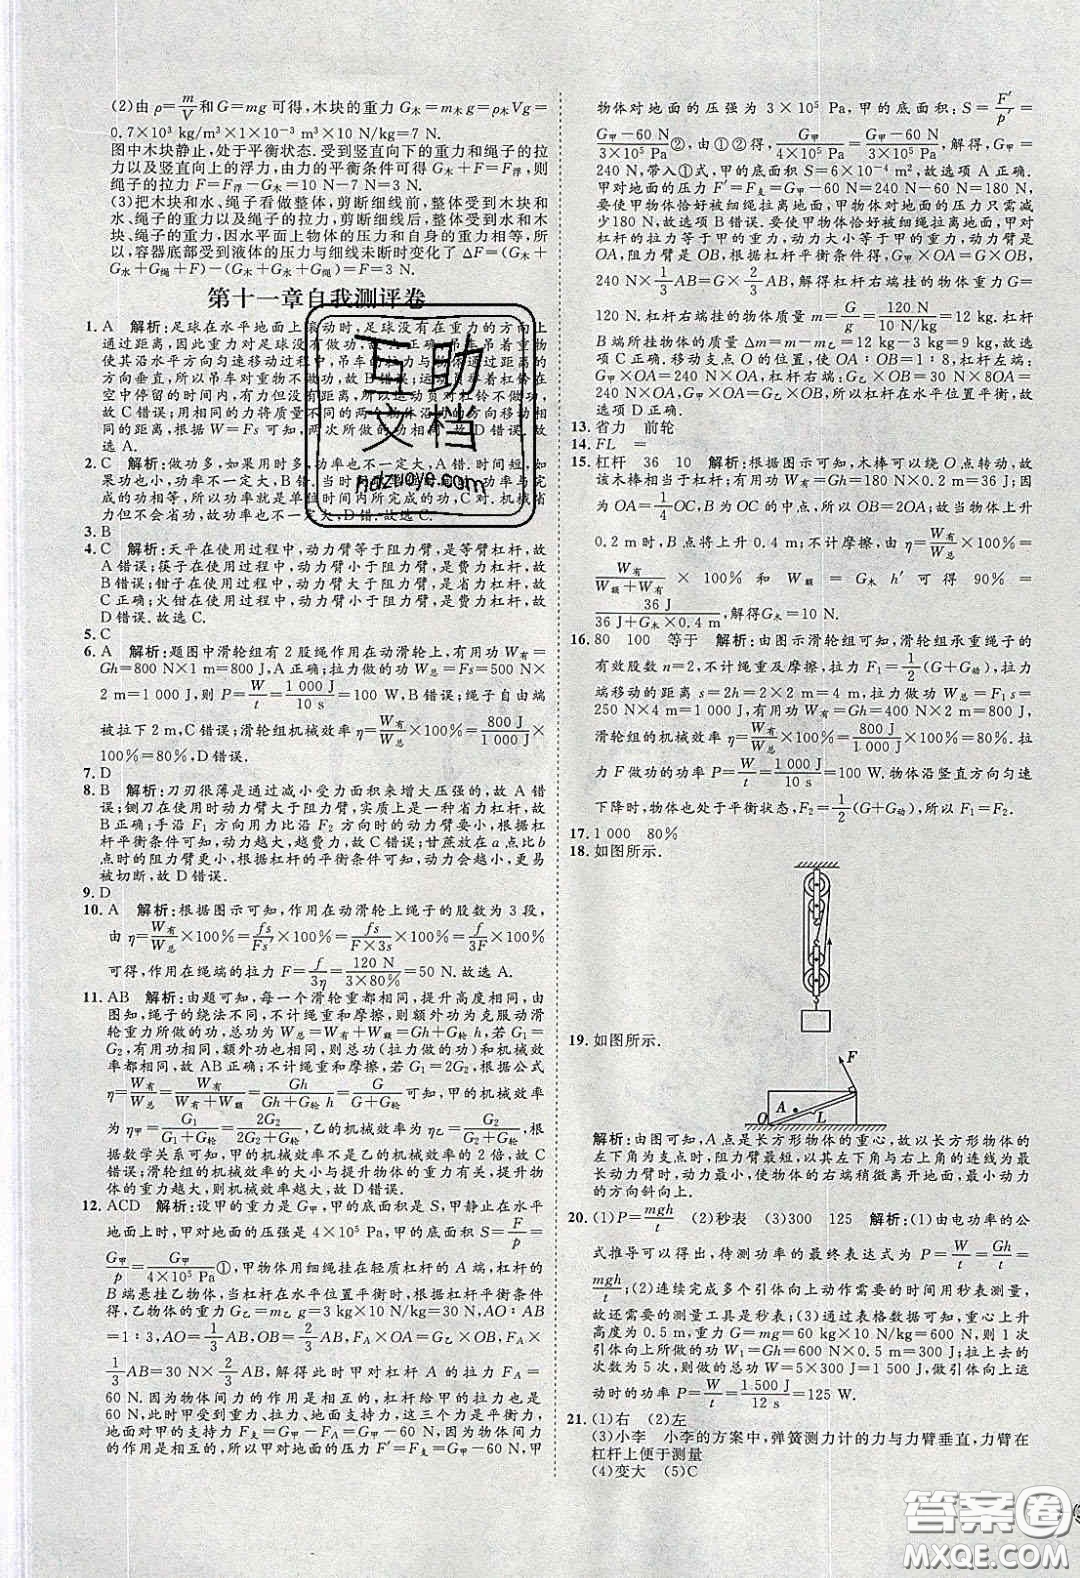 (2)由 ρ=m/V和G=mg可得,木块的重力 G木=m木g=ρ木Vg=
0.7×10³ kg/m³×1×10⁻³ m³×10 N/kg=7 N.
图中木块静止,处于平衡状态.受到竖直向下的重力和绳子的拉
力以及竖直向上的浮力,由力的平衡条件可得G木+F=F浮,则
绳子的拉力 F=F浮-G木=10 N-7 N=3 N.
(3)把木块和水、绳子看做整体,剪断细线前,整体受到木块和
水、绳子的重力以及绳子的拉力,剪断细线后,整体受到水和木
块、绳子的重力,因水平面上物体的压力和自身的重力相等,所
以,容器底部受到液体的压力与细线未断时变化了 ΔF=(G木+
G水+G绳+F)-(G木+G水+G绳)=F=3 N.
第十一章自我测评卷
1. A 解析:足球在水平地面上滚动时,足球没有在重力的方向上
通过距离,因此重力对足球没有做功,故A错误;吊车吊着重物
使其沿水平方向匀速移动过程中,吊车的拉力与移动距离的
方向垂直,所以吊车对重物不做功,故B错误;运动员举着杠铃在
空中停留的时间内,有力但没有距离,运动员对杠铃不做功,
故C错误;用相同的力将质量不同的两个物体沿力的方向移动相
同的距离,根据W=Fs可知,两次所做的功相同,故D错误.故
选A.
2. C 解析:做功多,如果用时多,功率也不一定大,A错.时间短,如
果功也小,功率也不一定大,B错.
完成的功相同,功率就是单位时间内完成的功,C对.机械越省
力但不会省功,故功率也不一定大,D错.故选C.
3. B
4. C 解析:天平在使用过程中,动力臂等于阻力臂,是等臂杠杆,故
A错误;筷子在使用过程中,动力臂小于阻力臂,是费力杠杆,故
B错误;钳子在使用过程中,动力臂大于阻力臂,是省力杠杆,故
C正确;火钳在使用过程中,动力臂小于阻力臂,是费力杠杆,故
D错误.故选C.
5. C
6. A 解析:题图中滑轮组有2股绳作用在动滑轮上,有用功W有=
Gh=800 N×1 m=800 J,A正确;拉力做的总功W总=Fs=500 N×
2 m=1 000 J,则P=W/t=1 000 J/10 s=100 W,B错误;绳子自由端
被拉下2 m,C错误;滑轮组机械效率 η=W有/W总×100%=800 J/1 000 J×
100%=80%,D错误.
7. D
8. B 解析:刀刃很薄是通过减小受力面积来增大压强的,故A
错误;铡刀在使用时动力臂大于阻力臂,实质上是一种省力杠杆,
故B正确;手沿F₁方向用力比沿F₂方向的动力臂要小,根据杠
杆平衡条件可知,动力越大,越费力,故C错误;甘蔗放在a点比b
点时的阻力臂更小,根据杠杆的平衡条件可知,动力会越小,更易
被切断,故D错误.
9. D
10. A 解析:根据图示可知,作用在动滑轮上绳子的股数为3段,
由 η=W有/W总×100%=fs/Fs′×100%=fs/(F×3s)×100%=f/3F×100%
可得,作用在绳端的拉力F=f/3η=120 N/(3×80%)=50 N.故选A.
11. AB 解析:由题可知,每一个滑轮重都相同,提升高度相同,由
图知,绳子的绕法不同,不计绳重和摩擦,则额外功为克服动滑
轮重力所做的功,总功为W总=W有+W额=Gh+G轮h.若G₁=
G₂,有用功相同,额外功也相同,所以总功(拉力做的功)和机械效
率都相同,故AB正确;不计绳重和摩擦,若G₁=2G₂,根据公式
η=W有/W总=W有/(W有+W额)=Gh/(Gh+G轮h)=G/(G+G轮)可知,甲的机械效率
为 η甲=G₁/(G₁+G轮)=2G₂/(2G₂+G轮),乙的机械效率η乙=G₂/(G₂+G轮),根
据数学关系可知甲的机械效率不是乙的机械效率的2倍,故C错
误;滑轮组的机械效率的大小与提升物体的重力有关,提升物体
的重力越大,则机械效率越大,故D错误.
12. ACD 解析:设甲的重力是G甲,甲的底面积是S,甲静止在水平
地面上时,甲对地面的压强是4×10⁵ Pa,甲的底面积 S=F/p=
G甲/p=G甲/(4×10⁵ Pa)①,甲物体用细绳挂在轻质杠杆的A端,杠杆的
B端悬挂乙物体,当杠杆在水平位置平衡时,根据杠杆平衡条件
得,乙物体的重力G乙=m乙g=3 kg×10 N/kg=30 N,AO∶OB
=1∶3,AO=1/3AB,OB=2/3AB,F_A×OA=G乙×OB,F_A×
1/3AB=30 N×2/3AB,解得此时甲对杠杆的拉力F_A=
60 N,因为物体间力的作用是相互的,杠杆给甲的拉力也是60 N,
此时甲受到重力、拉力、地面支持力,这三个力是平衡力,
地面对甲的支持力F支=G甲-F_A=G甲-60 N,因为物体间力
的作用是相互的,所以甲对地面的压力F′=F支=G甲-60 N,甲
物体对地面的压强为3×10⁵ Pa,甲的底面积:S=F′/p′=
(G甲-60 N)/(3×10⁵ Pa)②,由①②解得,G甲/(4×10⁵ Pa)=(G甲-60 N)/(3×10⁵ Pa),G甲=
240 N,带入①式,甲的底面积S=6×10⁻⁴ m²,故选项A正确.
甲对地面的压力F′=F支=G甲-60 N=240 N-60 N=180 N,
要使甲物体恰好被细绳拉离地面,甲对地面的压力减
少180 N,故选项B错误.要使甲物体恰好被细绳拉离地面,甲对
杠杆的拉力等于甲的重力,动力大小等于甲的重力,动力臂是
OA,阻力臂是OB,根据杠杆平衡条件得,G甲×OA=G×OB,
240 N×1/3AB=G×2/3AB,杠杆右端挂的物体重力G=
120 N,杠杆右端挂的物体质量m=G/g=120 N/10 N/kg=12 kg.杠杆
B端所挂物体质量Δm=m-m乙=12 kg-3 kg=9 kg,故选
项C正确.移动支点O的位置,使OA∶OB=1∶8,杠杆左端:
G甲×OA=240 N×OA,杠杆右端:G乙×OB=30 N×8OA=
240 N×OA,G甲×OA=G乙×OB,所以杠杆在水平位置平衡,故
选项D正确.
13. 省力 前轮
14. FL =
15. 杠杆 36 10 解析:根据图示可知,木棒可以绕O点转动,故
该木棒相当于杠杆;有用功W有=Gh=180 N×0.2 m=36 J;因
为OA=1/4OC,B为OC的中点,所以OB=2OA;故当物体上升
0.2 m时,B点将上升0.4 m;不计摩擦,由η=W有/W总×100%=
W有/(W额+W有)×100%和W额=G木h′可得90%=
36 J/(36 J+G木×0.4 m),解得G木=10 N.
16. 80 100 等于 解析:由图示滑轮组可知,滑轮组承重绳子的
有效股数n=2,不计绳重及摩擦,拉力F₁=1/2(G+G动),拉力
端移动的距离s=2h=2×2 m=4 m,拉力做功W总=F₁s=
250 N×4 m=1 000 J,有用功W有=Gh=400 N×2 m=800 J,
滑轮组的机械效率 η=W有/W总×100%=800 J/1 000 J×100%=80%,拉
力F₁做功的功率P=W总/t=1 000 J/10 s=100 W.物体沿竖直方向匀速
下降时,物体也处于平衡状态,F₂=1/2(G+G动),所以F₁=F₂.
17. 1 000 80%
18. 如图所示.
19. 如图所示.
F
A
L
O
解析:由图可知,A点是长方形物体的重心,故以长方形物体的
左下角为支点时,阻力臂最短,以其左下角与右上角的连线为最
长动力臂时,动力最小,使物体的右端稍微离开地面,动力
的方向斜向上.
20. (1)P=mgh/t (2)秒表 (3)300 125 解析:(1)由电功率的公
式推导可以得出,待测功率的最终表达式为P=W/t=Gh/t=
mgh/t;(2)连续完成多个引体向上动作需要的时间用秒表测量,
故还需要的测量工具是秒表;(3)通过表格数据可知,引体向上升
高度为0.5 m,重力G=mg=60 kg×10 N/kg=600 N,则1次
引体向上所做的功W₁=Gh=600 N×0.5 m=300 J;拉上去的
次数为5次,则做的总功W=5×300 J=1 500 J,做引体向上运
动的功率P=W/t=1 500 J/12 s=125 W.
21. (1)右 (2)左
(3)小李 小李的方案中,弹簧测力计的力与力臂垂直,力臂在
杠杆上便于测量
(4)变大 (5)C
互助
文档
hdzuoye.com
答案圈
MXQE.COM